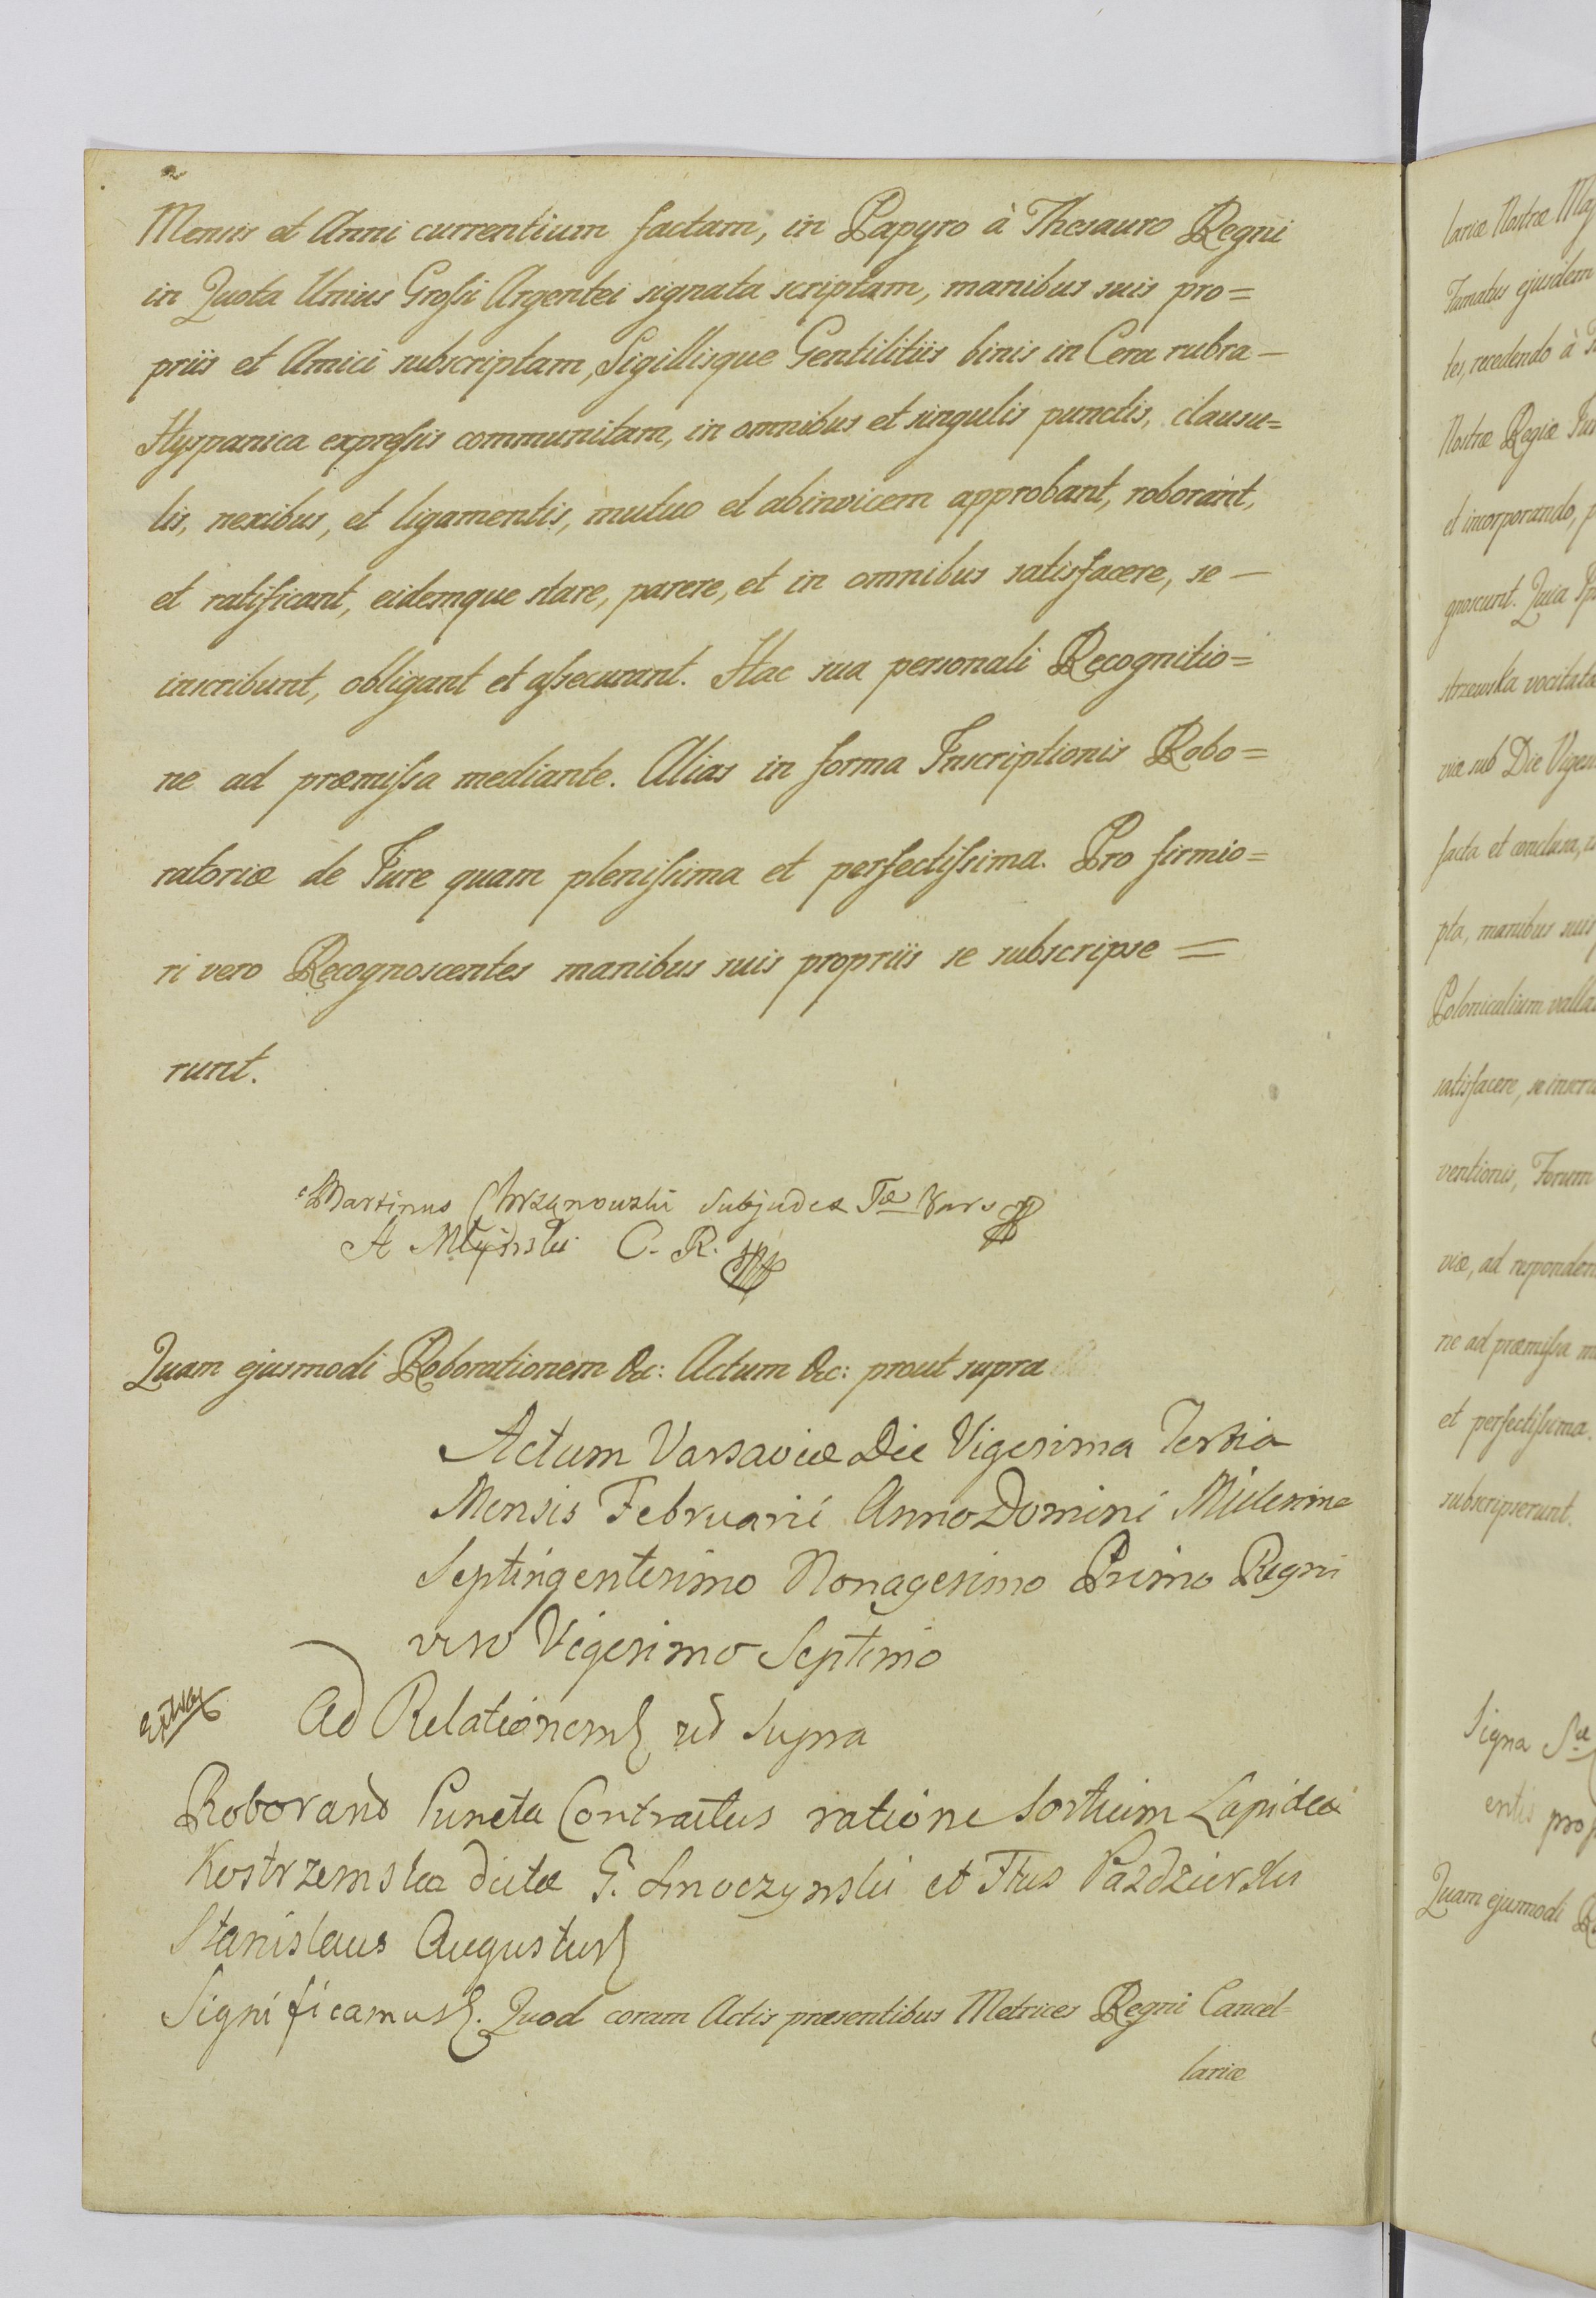 Mensis et Anni currentium factam, in Papyro à Thesauro Regni
in Quota Unius Grossi Argentei signata scriptam, manibus suis pro=
priis et Amici subscriptam, Sigillisque Gentilitiis binis in Cera rubra —
Hyspanica expressis communitam, in omnibus et singulis punctis, clausu=
lis, nexibus, et ligamentis, mutuo et abinvicem approbant, roborant,
et ratificant, eidemque stare, parere, et in omnibus satisfacere, se —
inscribunt, obligant et assecurant. Hac sua personali Recognitio=
ne ad præmissa mediante. Alias in forma Inscriptionis Robo=
ratoriæ de Jure quam plenissima et perfectissima. Pro firmio=
ri vero Recognoscentes manibus suis propriis se subscripse=
runt.
Martinus Chrzanowski Subjudex Tæ Vars
A Młyński C. R.
Quam ejusmodi Roborationem &c: Actum &c: prout supra
Actum Varsaviæ Die Vigesima Tertia
Mensis Februarii Anno Domini Milesimo
Septingentesimo Nonagesimo Primo Regni
vero Vigesimo Septimo
Ad Relationem ut Supra
Roborand Puncta Contractus ratione Sortium Lapideæ
Kostrzemska dictæ G. et Ftus
Stanislaus Augustus
Significamus. Quod coram Actis præsentibus Metrices Regni Cancel=
lariæ
lariæ Nostræ Maj
Famatus ejusdem
tes, recedendo à
Nostræ Regiæ
et incorporando, p
gnoscunt. Quia
strzewska vocitatæ
viæ sub Die Viges
facta et conclusa,
pta, manibus suis
Polonicalium valla
satisfacere, se inscri
ventionis, Forum
viæ, ad responden
ne ad præmissa m
et perfectissima.
subscripserunt.
Signa Sæ
entis prop
Quam ejusmodi R